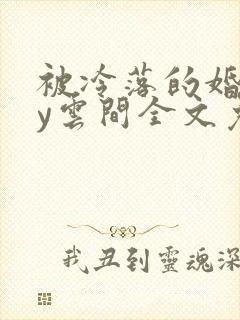 被冷落的婚
y雲間全文
我丑到靈魂深